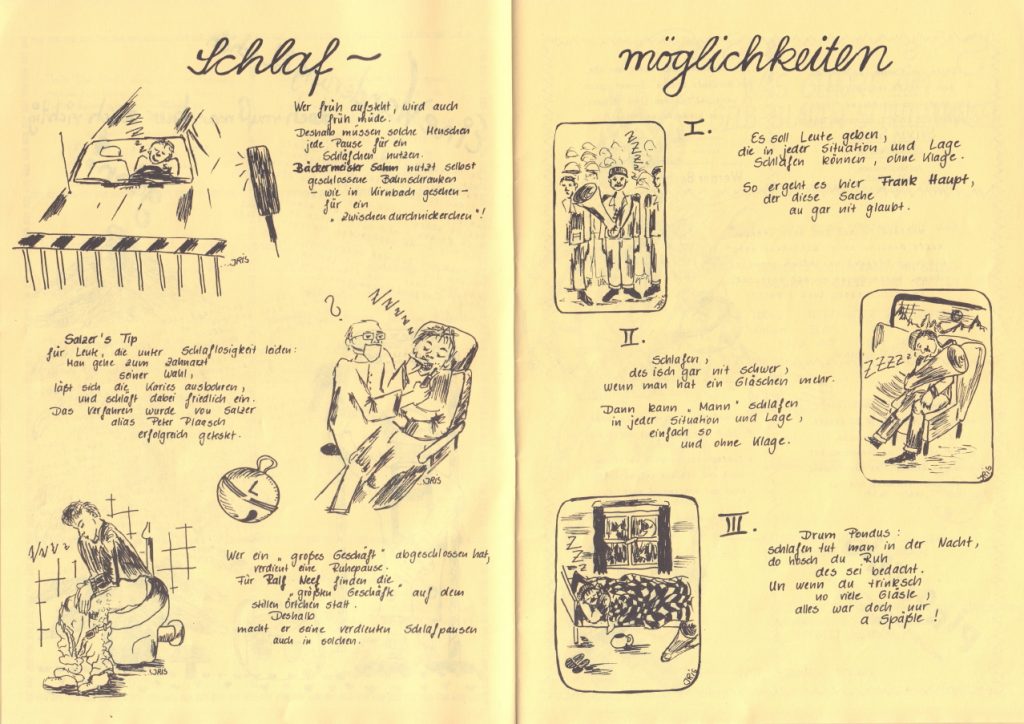 Schlaf~
Wer früh aufsteht, wird auch
früh müde.
Deshalb müssen solche Menschen
jede Pause für ein
Schläfchen nutzen.
Bäckermeister Sahm nutzt selbst
geschlossene Bahnschranken
- wie in Kirnbach gesehen -
für ein
"Zwischendurchnickerchen"!
ZZZZ
IRIS
Salzer's Tip
für Leute, die unter Schlaflosigkeit leiden:
Man gehe zum Zahnarzt
seiner Wahl,
läßt sich die Karies ausbohren,
und schläft dabei friedlich ein.
Das Verfahren wurde von Salzer
alias Peter Plaasch
erfolgreich getestet.
?
ZZZZZZ
IRIS
Wer ein "großes Geschäft" abgeschlossen hat,
verdient eine Ruhepause.
Für Ralf Neef finden die
"größten Geschäfte" auf dem
stillen Örtchen statt.
Deshalb
macht er seine verdienten Schlafpausen
auch in solchen.
ZZZZ
IRIS
möglichkeiten
I.
Es soll Leute geben,
die in jeder Situation und Lage
Schlafen können, ohne Klage.
So ergeht es hier Frank Haupt,
der diese Sache
au gar nit glaubt.
ZZZZ
IRIS
II.
Schlafen,
des isch gar nit schwer,
wenn man hat ein Gläschen mehr.
Dann kann "Mann" schlafen
in jeder Situation und Lage,
einfach so
und ohne Klage.
ZZZZZ
IRIS
III.
Drum Pondus:
schlafen tut man in der Nacht,
do hosch du Ruh
des sei bedacht.
Un wenn du trinksch
no viele Gläsle,
alles war doch nur
a Späßle!
ZZZ
IRIS